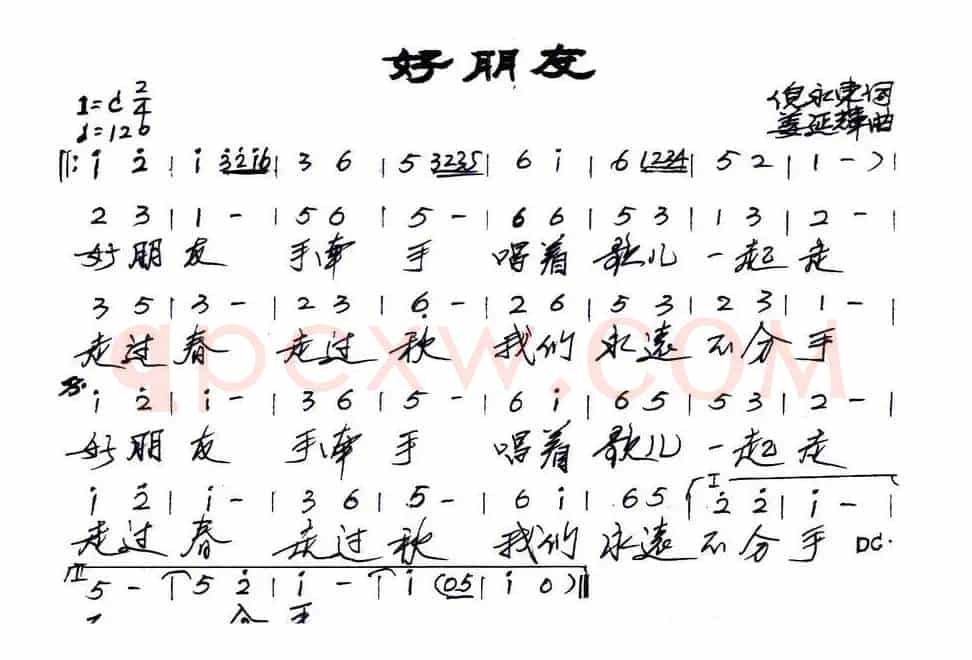 好朋友
1=C 2/4
♩=126
倪永东词
姜延辉曲
‖: i̇ 2̇ | i̇ 3̇2̇i̇6 | 3 6 | 5 3235 | 6 i̇ | 6 1234 | 5 2 | 1 - )
2 3 | 1 - | 5 6 | 5 - | 6 6 | 5 3 | 1 3 | 2 - |
好朋友 手牵手 唱着歌儿一起走
3 5 | 3 - | 2 3 | 6̣ - | 2 6 | 5 3 | 2 3 | 1 - |
走过春 走过秋 我们永远不分手
i̇ 2̇ | i̇ - | 3 6 | 5 - | 6 i̇ | 6 5 | 5 3 | 2 - |
好朋友 手牵手 唱着歌儿一起走
i̇ 2̇ | i̇ - | 3 6 | 5 - | 6 i̇ | 6 5 | I 2̇ 2̇ | i̇ - |
走过春 走过秋 我们永远不分手 DC.
II 5 - | 5 2̇ | i̇ - | i̇ (05 | i̇ 0 )‖
qpcxw.COM